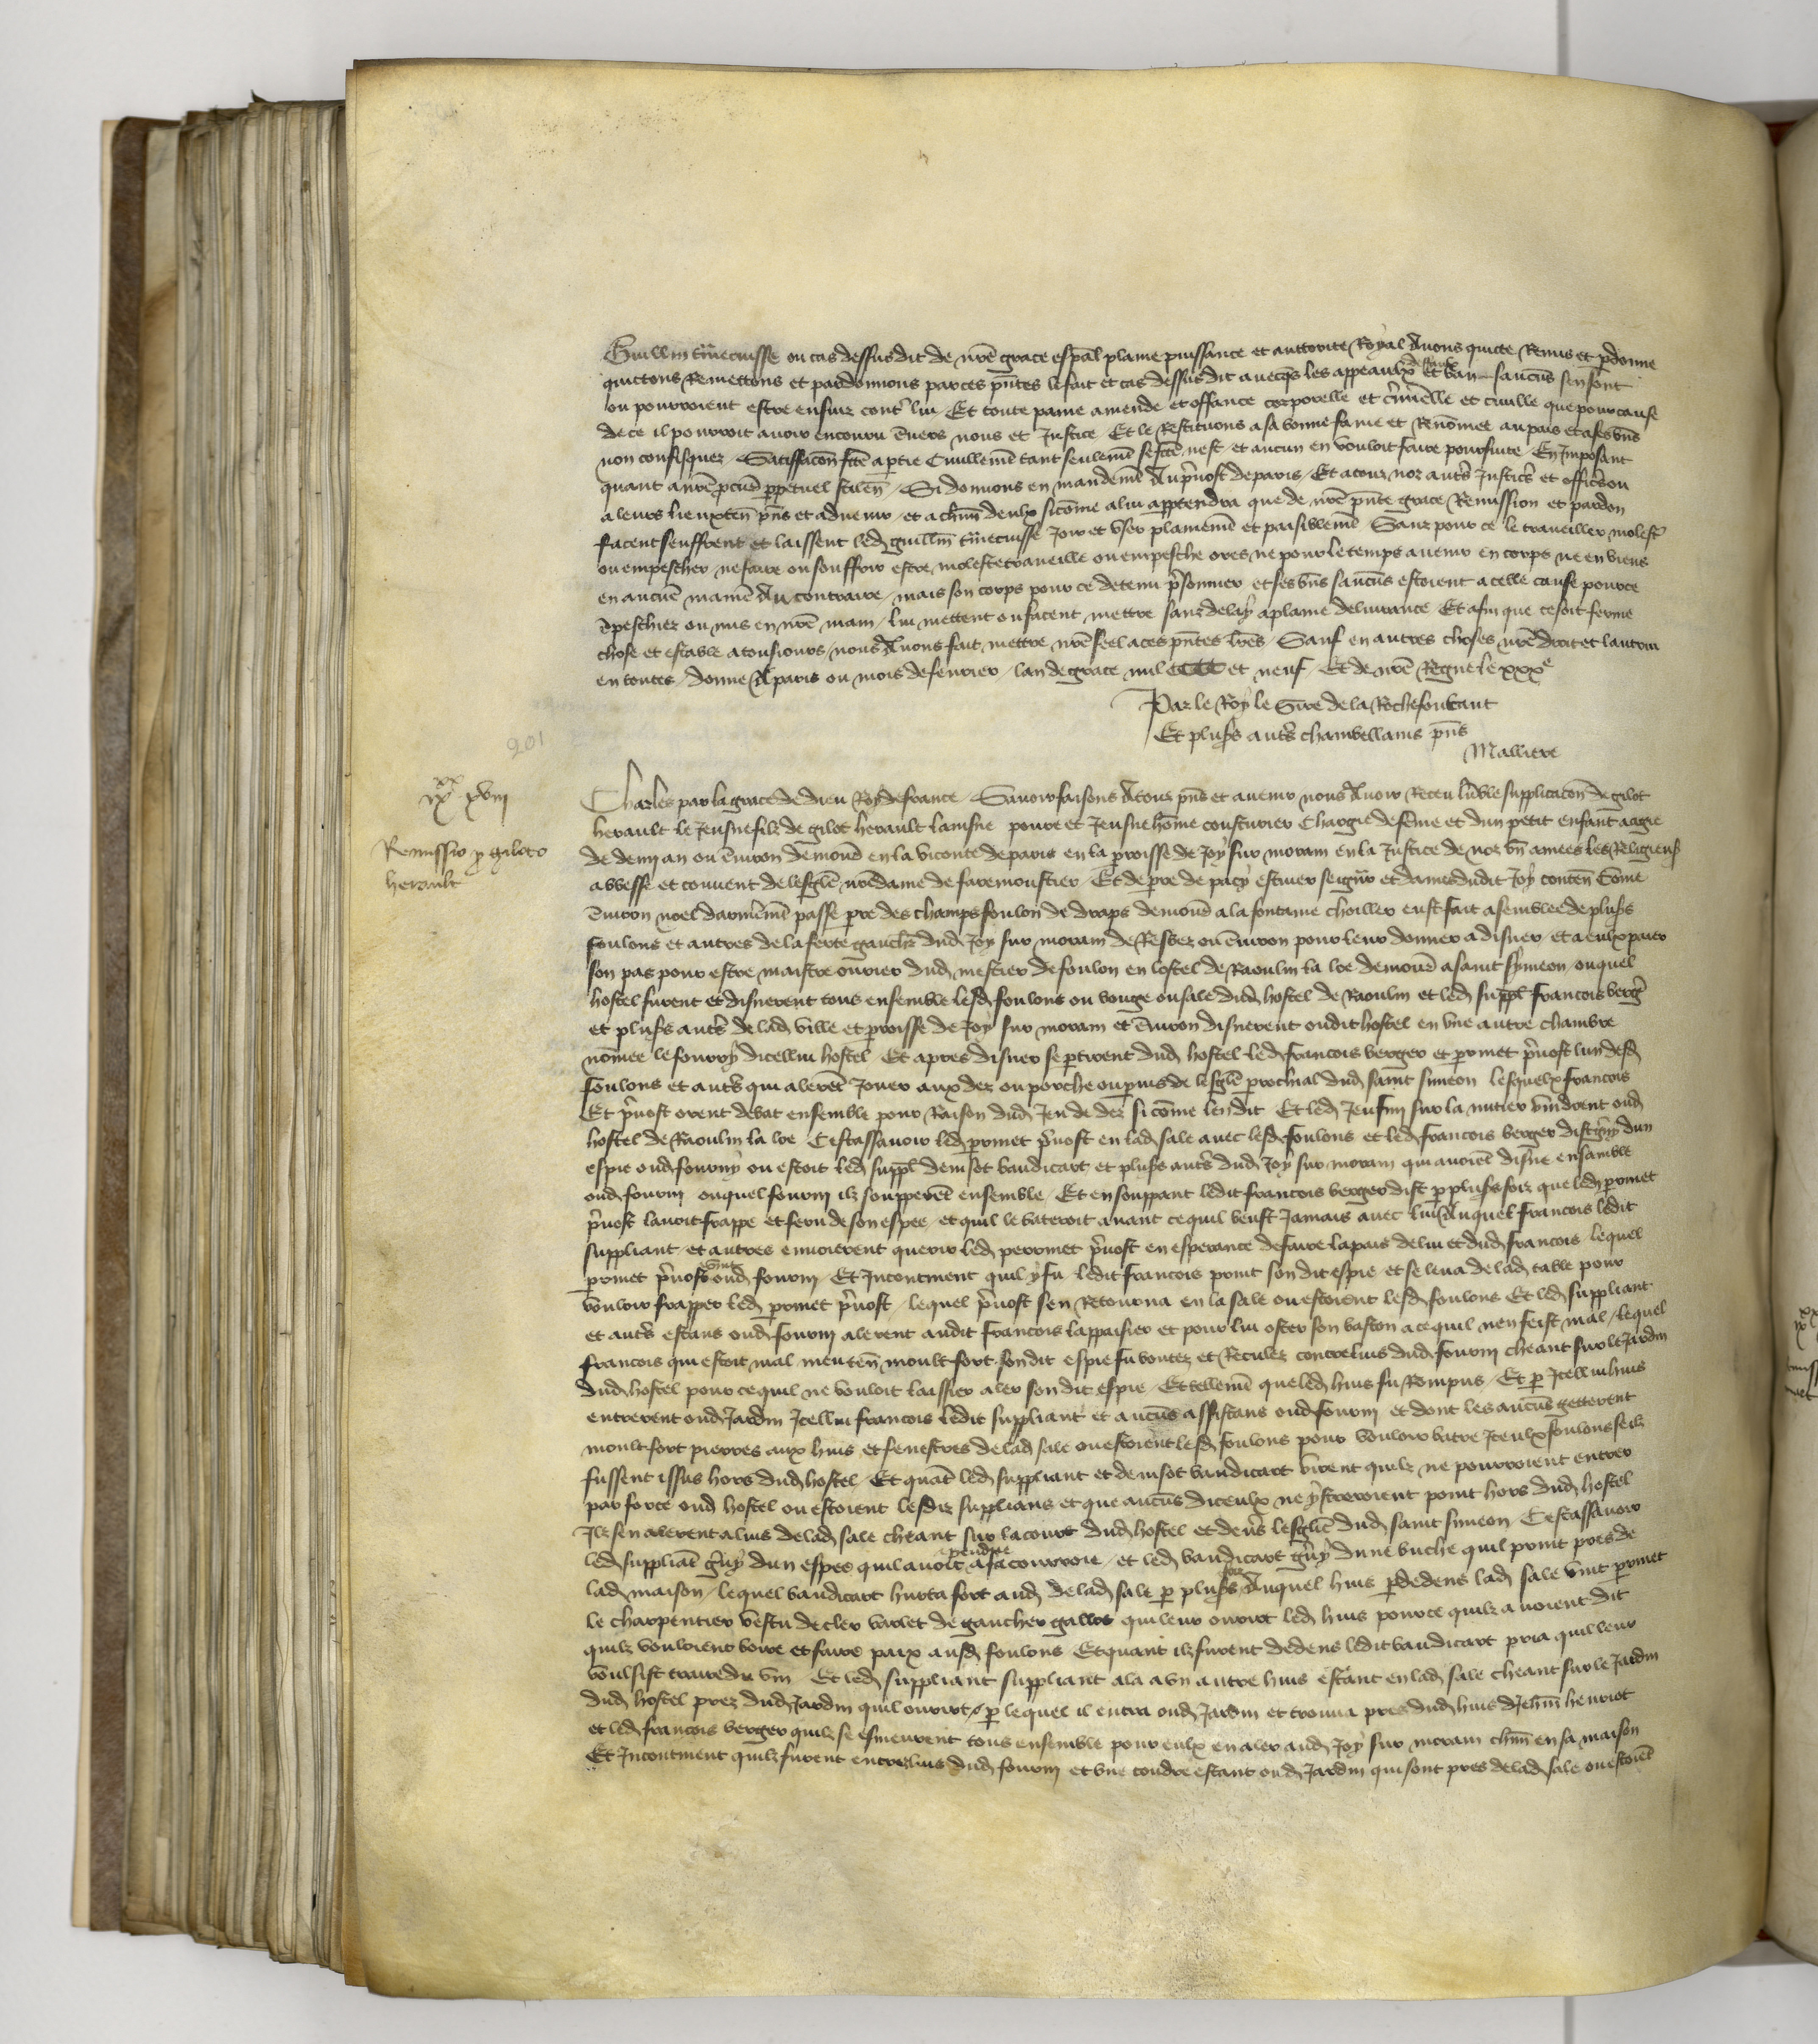 Guillm̄ ou cas dessus dit de nr̄e grace esp̄al plaine puissance et auttorite Royal Auons quicte Remis et pardonne
quictons Remettons et pardonnons par ces pn̄tes le fait et cas dessus dit auecq̄s les appeaulx et ban saucūs sen sont
ou pourroient estre ensuiz cont̄ lui Et toute paine amende et offance corporelle et crīmēlle et ciuille que pour cause
de ce il pourroit auoir encouru ēuers nous et Justice Et le Restituons a sa bonne fame et Renōmee au pais et a ses bn̄s
non confisquez Satisfacōn fc̄te a ptie Ciuillemēt tant seulemēt se fc̄te nest et aucun en vouloit faire poursuite En Imposant
quant a nr̄e pcur̄ ppetuel silen̄ Si donnons en mandemēt Au pr̄uost de paris Et a touz noz autr̄s Justic̄s et offic̄s ou
a leurs lieuxten̄ pn̄s et aduenir et a chūn deulx sicōme a lui appartendra que de nr̄e pn̄te grace Remission et pardon
facent seuffrent et laissent led guillm̄ Joir et vser plainemēt et paisiblemēt Sanz pour ce le traueillier molest̄
ou empescher ne faire ou souffrir estre moleste traueille ou empesche ores ne pour le temps auenir en corps ne en biens
en aucūe manīe Au contraire mais son corps pour ce detenu pr̄sonnier et ses bn̄s saucūs estoient a celle cause pour ce
ēpeschiez ou mis en nr̄e main lui mettent ou facent mettre sanz delay a plaine deliurance Et afin que ce soit ferme
chose et estable a tousiours nous Auons fait mettre nr̄e seel a ces pn̄tes lr̄es Sauf en autres choses nr̄e droit et lautrui
en toutes donne A paris ou mois de feurier lan de grace mil cccc et neuf Et de nr̄e Regne le xxxe
Par le Roy le Sire de la Rochefoucaut
Et plus̄s autr̄s chambellains pn̄s
Maliere
201
ixxx xviii
Remissio p giloto
herault
Charles par la grace de dieu Roy de france Sauoir faisons A touz pn̄s et auenir nous Auoir Receu lūble supplicacōn de gilot
herault le Jeusne filz de gilot herault laisne poure et Jeusne hōme cousturier Chargie de fēme et dun petit enfant aagie
de demi an ou ēuiron demour̄ en la viconte de paris en la proisse de Joy sur morain en la Justice de noz bn̄ amees les Religieus̄
abbesse et conuent de lesglīe nr̄e dame de faremoustier Et de pre de pacy escuier seign̄r et dames dudit Joy conten̄ Cōme
ēuiron noel darrēmēt passe pre des champs foulon de draps demour̄ a la fontaine choiller eust fait asemblee de plus̄s
foulons et autres de la ferte gauch̄ dud Joy sur morain de Resbez ou ēuiron pour leur donner a disner et a eulx paier
son pas pour estre maistre ouurier dud mestier de foulon en lostel de Raoulin la loe demour̄ a saint symeon ouquel
hostel furent et disnerent tous ensemble lesd foulons ou bouge ou sale dud hostel de Raoulin et led suppl̄ francois berḡ
et plus̄s autr̄s de lad ville et proisse de Joy sur morain et ēuiron disnerent oudit hostel en vne autre chambre
nōmee le fourny dicellui hostel Et apres disner se ptirent dud hostel led francois berger et perrinet pr̄uost lun desd
foulons et autr̄s qui alerēt Jouer aux dez ou porche ou puis de lesglīe prochial dud saint simeon lesquelx francois
Et pr̄uost orent debat ensemble pour Raison dud Jeu de dez si cōme len dit Et led Jeu fini sur la nuitier vindrent oud
hostel de Raoulin la loe Cestassauoir led perrinet pr̄uost en lad sale auec lesd foulons et led francois berger dun
espie oud fourny ou estoit led suppl̄ denisot baudicart et plus̄s autr̄s dud Joy sur morain qui auoiēt disne ensamble
oud fourni ouquel fourni ilz soupperēt ensemble Et en souppant ledit francois berger dist p plus̄s foiz que led perrinet
pr̄uost lauoit frappe et feru de son espee et quil le bateroit auant ce quil beust Jamais auec lui Auquel francois ledit
suppliant et autres enuoierent querir led perrinet pr̄uost en esperance de faire la paix de lui et dud francois lequel
perrinet pr̄uost vint oud fourni Et Incontinent quil y fu ledit francois print son dit espie et se leua de lad table pour
vouloir frapper led perrinet pr̄uost lequel pr̄uost sen Retourna en la sale ou estoient lesd foulons Et led suppliant
et autr̄s estans oud fourni alerent audit francois lappaisier et pour lui oster son baston a ce quil nen feist mal lequel
francois qui estoit mal meu ten̄ moult fort son dit espie fu boutez et Reculez contre luis dud fourni cheant sur le Jardin
dud hostel pour ce quil ne vouloit laissier aler son dit espie Et tellemēt que led huis fu Rompus Et p Icellui huis
entrerent oud Jardin Icellui francois ledit suppliant et aucūs assistans oud fourni et dont les aucūs getterent
moult fort pierres aux huis et fenestres de lad sale ou estoient lesd foulons pour vouloir batre Iceulx foulons se ilz
fussent issus hors dud hostel Et quāt led suppliant et denisot baudicart virent quilz ne pourroient entrer
par force oud hostel ou estoient lesdiz supplians et que aucūs diceulx ne ystreroient point hors dud hostel
Ilz sen alerent a luis de lad sale cheant sur la court dud hostel et deūs lesglīe dud saint simeon Cestassauoir
led suppliāt garny dun espee quil auoit pendue a sa courroie et led baudicart garny dune buche quil print pres de
lad maison lequel baudicart hurta fort aud de lad sale p plus̄s foiz Auquel huis p dedens lad sale vint perrinet
le charpentier vestu de cler varlet de gaucher gallot qui leur ouurit led huis pour ce quilz auoient dit
quilz vouloient boire et faire paix ausd foulons Et quant ilz furent dedens ledit baudicart pria quil leur
voulsist traire du vin Et led suppliant suppliant ala a vn autre huis estant en lad sale cheant sur le Jardin
dud hostel prez dud Jardin quil ouurit p lequel il entra oud Jardin et trouua pres dud huis Jehan̄ henriot
et led francois berger quilz se esmeurent tous ensemble pour eulx en aler aud Joy sur morain chūn en sa maison
Et Incontinent quilz furent entre luis dud fourni et vne coudre estant oud Jardin qui sont pres de lad sale ou estoiēt